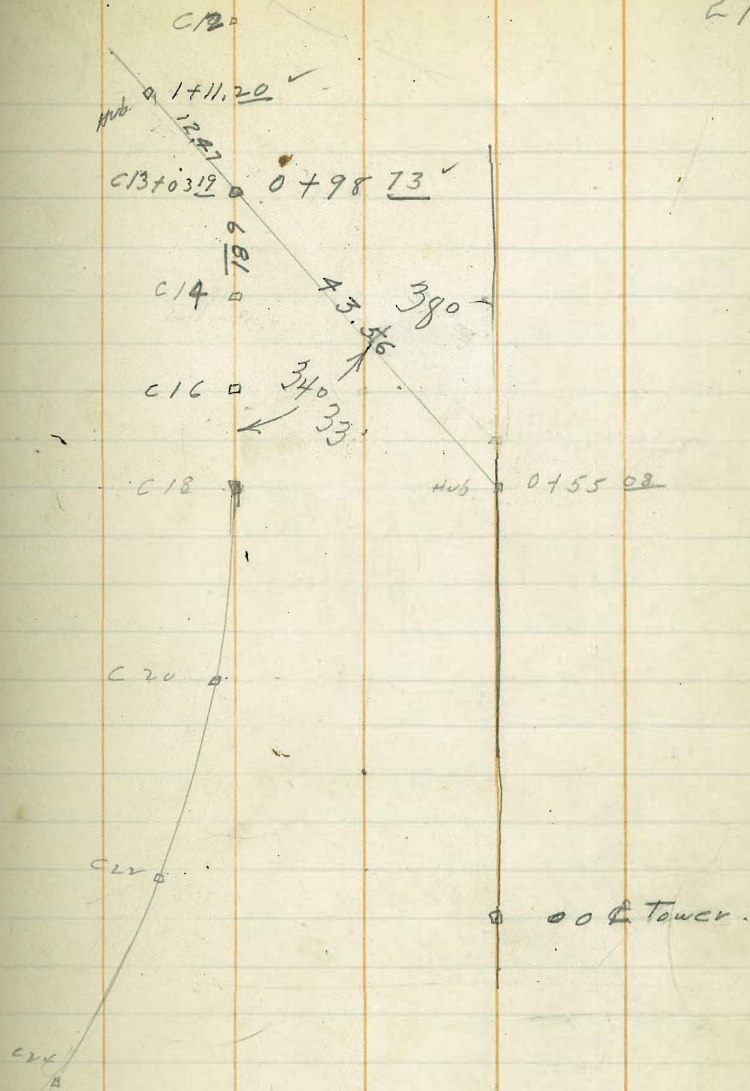 C12
Hub 1+11.20 ✓
12.47
C13+0319 0+98 73 ✓
6 81
C14
43.56
380
C16
340
33
C18
Hub 0+55 08
C20
C22
00 ℄ Tower.
C24